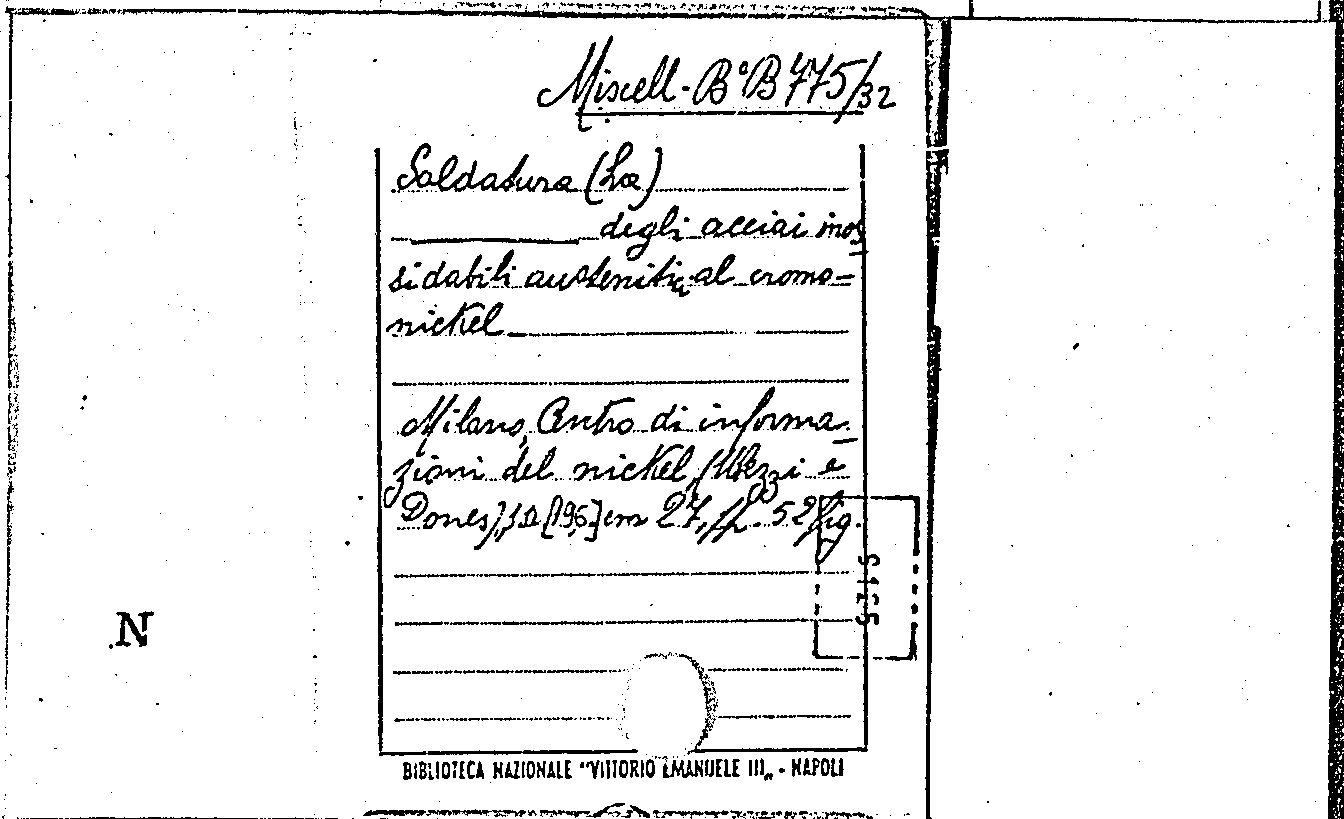 Miscell. B^a B 775/32
Soldatura (La)
degli acciai inos
sidabili austenitici al cromo=
nickel
Milano, Centro di informa-
zioni del nickel, (Mezzi e
Dones), s.a. [196.] cm 27, pp. 52 fig.
N
BIBLIOTECA NAZIONALE "VITTORIO EMANUELE III„ - NAPOLI